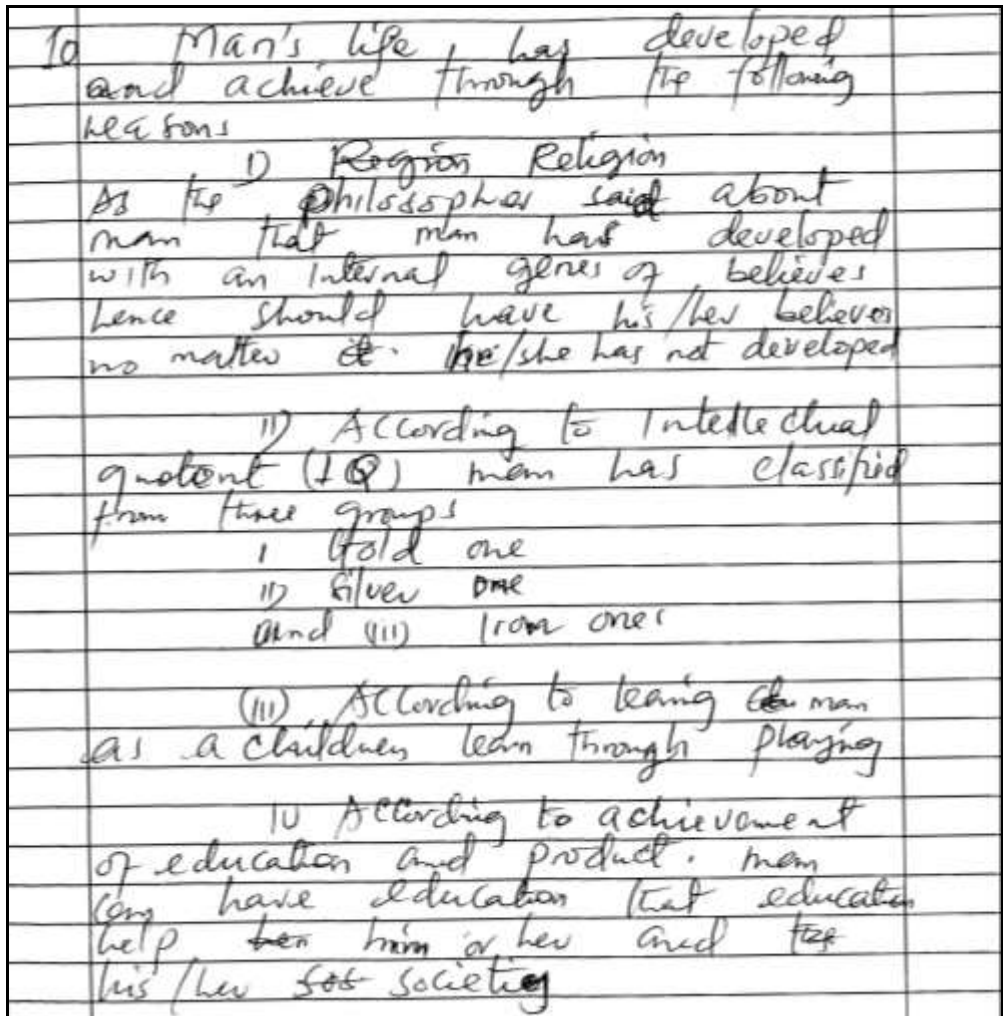 10 Man's life, has developed
and achieve through the following
reasons
1) Region Religion
As the philosopher said about
man that man has developed
with an internal genes of believes
hence should have his/her believes
no matter he/she has not developed
11) According to Intellectual
quotent (IQ) man has classified
from three groups
1 Gold one
11) Silver one
and (111) Iron ones
(111) According to learing man
as a children learn through playing
IV According to achievement
of education and product. man
can have education that education
help him or her and
his/her societies